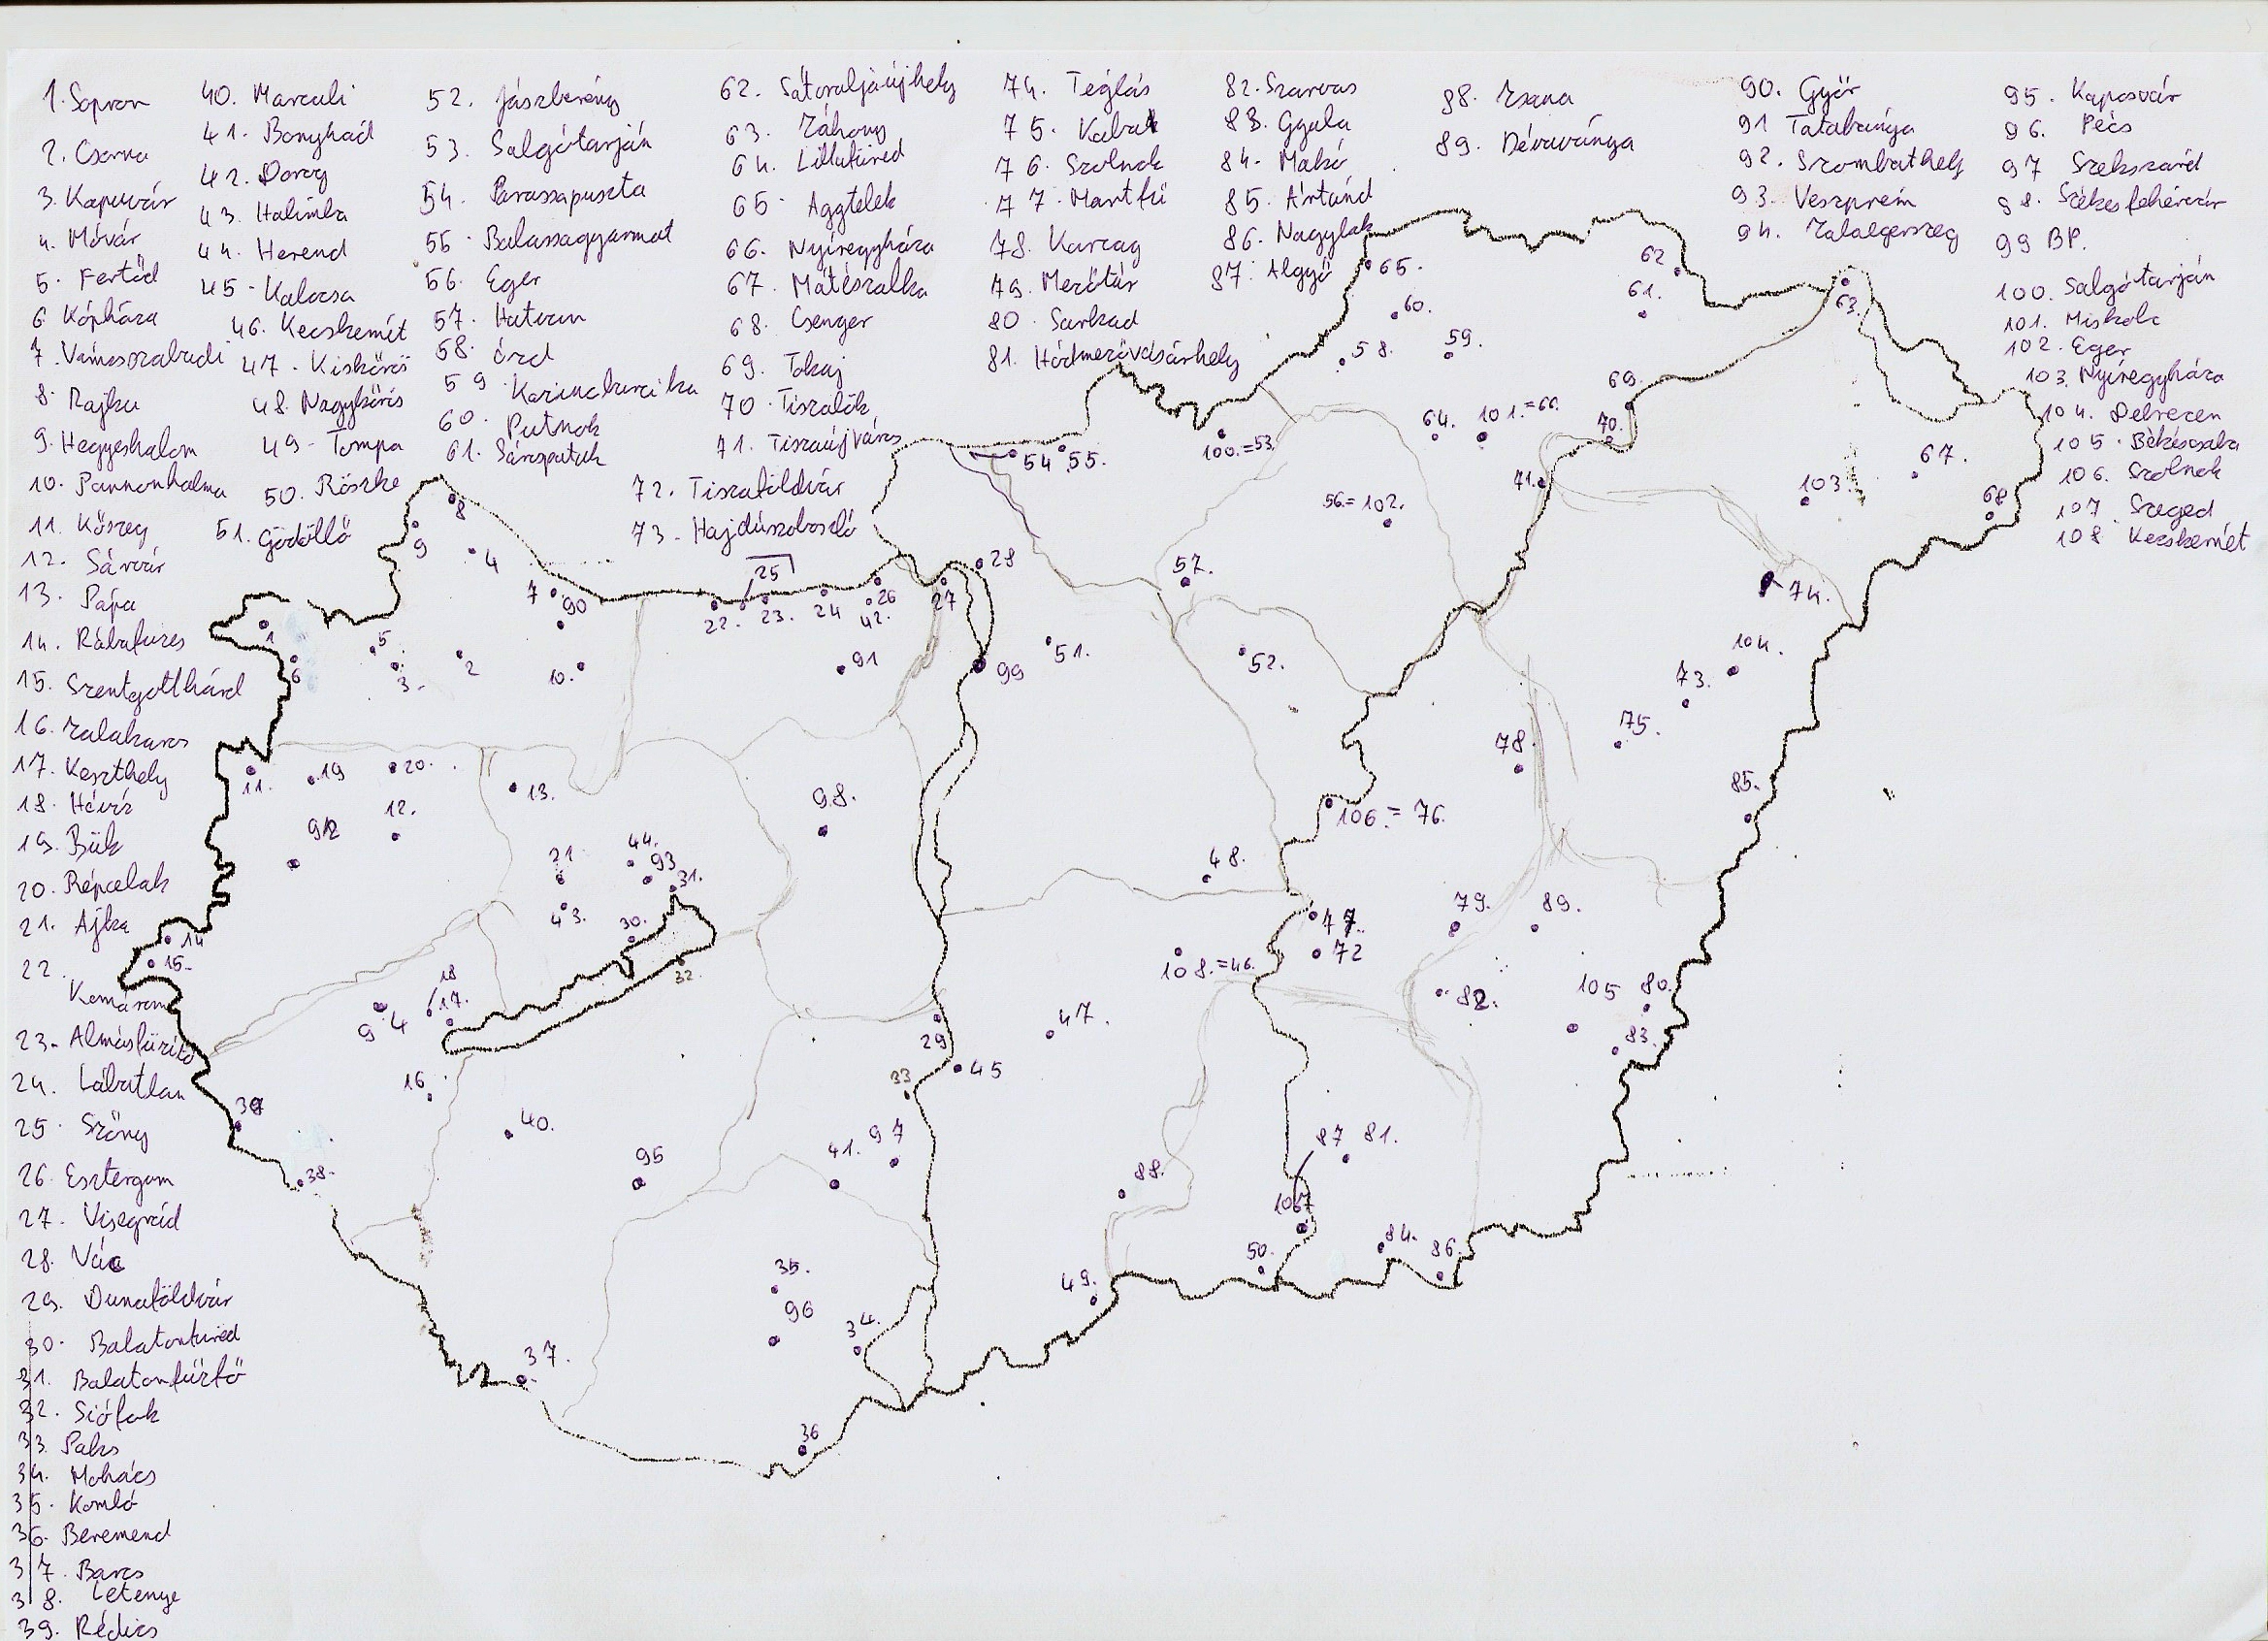 1. Sopron
2. Csorna
3. Kapuvár
4. Móvár
5. Fertőd
6 Kópháza
7. Vámosszabadi
8. Rajka
9. Hegyeshalom
10. Pannonhalma
11. Kőszeg
12. Sárvár
13. Pápa
14. Rábafüzes
15. Szentgotthárd
16. Zalakaros
17. Keszthely
18. Hévíz
19. Bük
20. Répcelak
21. Ajka
22. Komárom
23. Almásfüzitő
24. Lábatlan
25. Szőny
26. Esztergom
27. Visegrád
28. Vác
29. Dunaföldvár
30. Balatonfüred
31. Balatonfűzfő
32. Siófok
33. Paks
34. Mohács
35. Komló
36. Beremend
37. Barcs
38. Letenye
39. Rédics
40. Marcali
41. Bonyhád
42. Dorog
43. Halimba
44. Herend
45. Kalocsa
46. Kecskemét
47. Kiskőrös
48. Nagykőrös
49. Tompa
50. Röszke
51. Gödöllő
52. Jászberény
53. Salgótarján
54. Parassapuszta
55. Balassagyarmat
56. Eger
57. Hatvan
58. Ózd
59. Kazincbarcika
60. Putnok
61. Sárospatak
62. Sátoraljaújhely
63. Záhony
64. Lillafüred
65. Aggtelek
66. Nyíregyháza
67. Mátészalka
68. Csenger
69. Tokaj
70. Tiszalök
71. Tiszaújváros
72. Tiszaföldvár
73. Hajdúszoboszló
74. Téglás
75. Kaba
76. Szolnok
77. Martfű
78. Karcag
79. Mezőtúr
80. Sarkad
81. Hódmezővásárhely
82. Szarvas
83. Gyula
84. Makó
85. Ártánd
86. Nagylak
87. Algyő
88. Zsana
89. Dévaványa
90. Győr
91 Tatabánya
92. Szombathely
93. Veszprém
94. Zalaegerszeg
95. Kaposvár
96. Pécs
97 Szekszárd
98. Székesfehérvár
99 BP.
100. Salgótarján
101. Miskolc
102. Eger
103. Nyíregyháza
104. Debrecen
105. Békéscsaba
106. Szolnok
107. Szeged
108 Kecskemét
65.
62
61.
63.
60.
58.
59.
69.
64.
101.=66.
70.
100.=53.
54
55.
71.
67.
103.
68
56.=102.
8
9
4
28
57.
25
7
90
22.
23.
24
26
42.
27
74.
1
5
2
3.
6
10.
91
99
51.
52.
104.
73.
75.
78.
11.
19
20.
13.
98.
85.
12.
92
106.=76.
21
44.
93
31.
48.
43.
30.
77.
79.
89.
14
15.
72
32.
108.=46.
18
17.
94
82.
105
80.
29
47.
83.
16.
33
45
39
40.
41.
97
87
81.
38.
95
88.
107
84.
50.
86.
35.
49.
96
34.
37.
36